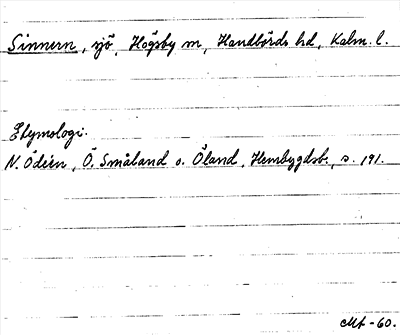 Sinnern, sjö, Högsby m, Handbörds hd, Kalm. l.
Etymologi.
N. Ödéen, Ö. Småland o. Öland, Hembygdsb., s. 191.
-60.